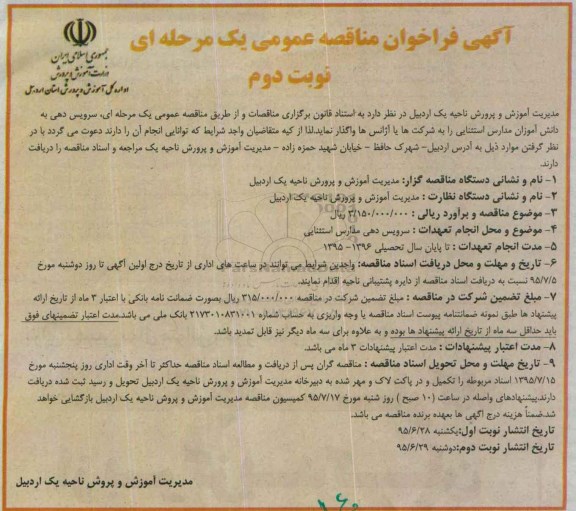 جمهوری اسلامی ایران
وزارت آموزش و پرورش
اداره کل آموزش و پرورش استان اردبیل
آگهی فراخوان مناقصه عمومی یک مرحله ای
نوبت دوم
مدیریت آموزش و پرورش ناحیه یک اردبیل در نظر دارد به استناد قانون برگزاری مناقصات و از طریق مناقصه عمومی یک مرحله ای، سرویس دهی به
دانش آموزان مدارس استثنایی را به شرکت ها یا آژانس ها واگذار نماید.لذا از کیه متقاضیان واجد شرایط که توانایی انجام آن را دارند دعوت می گردد با در
نظر گرفتن موارد ذیل به آدرس اردبیل- شهرک حافظ - خیابان شهید حمزه زاده - مدیریت آموزش و پرورش ناحیه یک مراجعه و اسناد مناقصه را دریافت
دارند.
۱- نام و نشانی دستگاه مناقصه گزار: مدیریت آموزش و پرورش ناحیه یک اردبیل
۲- نام و نشانی دستگاه نظارت : مدیریت آموزش و پرورش ناحیه یک اردبیل
۳- موضوع مناقصه و برآورد ریالی : ۳/۱۵۰/۰۰۰/۰۰۰ ریال
۴- موضوع و محل انجام تعهدات : سرویس دهی مدارس استثنایی
۵- مدت انجام تعهدات : تا پایان سال تحصیلی ۱۳۹۶- ۱۳۹۵
۶- تاریخ و مهلت و محل دریافت اسناد مناقصه: واجدین شرایط می توانند در ساعت های اداری از تاریخ درج اولین آگهی تا روز دوشنبه مورخ
۹۵/۷/۵ نسبت به دریافت اسناد مناقصه از دایره پشتیبانی ناحیه اقدام نمایند.
۷- مبلغ تضمین شرکت در مناقصه : مبلغ تضمین شرکت در مناقصه ۳۱۵/۰۰۰/۰۰۰ ریال بصورت ضمانت نامه بانکی با اعتبار ۳ ماه از تاریخ ارائه
پیشنهاد ها طبق نمونه ضمانتنامه پیوست اسناد مناقصه یا وجه واریزی به حساب شماره ۲۱۷۳۰۱۰۸۳۱۰۰۱ بانک ملی می باشد.مدت اعتبار تضمینهای فوق
باید حداقل سه ماه از تاریخ ارائه پیشنهاد ها بوده و به علاوه برای سه ماه دیگر نیز قابل تمدید باشد.
۸- مدت اعتبار پیشنهادات : مدت اعتبار پیشنهادات ۳ ماه می باشد.
۹- تاریخ مهلت و محل تحویل اسناد مناقصه : مناقصه گران پس از دریافت و مطالعه اسناد مناقصه حداکثر تا آخر وقت اداری روز پنجشنبه مورخ
۱۳۹۵/۷/۱۵ اسناد مربوطه را تکمیل و در پاکت لاک و مهر شده به دبیرخانه مدیریت آموزش و پرورش ناحیه یک اردبیل تحویل و رسید ثبت شده دریافت
دارند.پیشنهادهای واصله در ساعت (۱۰ صبح ) روز شنبه مورخ ۹۵/۷/۱۷ کمیسیون مناقصه مدیریت آموزش و پروش ناحیه یک اردبیل بازگشایی خواهد
شد.ضمناً هزینه درج آگهی ها بعهده برنده مناقصه می باشد.
تاریخ انتشار نوبت اول:یکشنبه ۹۵/۶/۲۸
تاریخ انتشار نوبت دوم:دوشنبه ۹۵/۶/۲۹
مدیریت آموزش و پروش ناحیه یک اردبیل